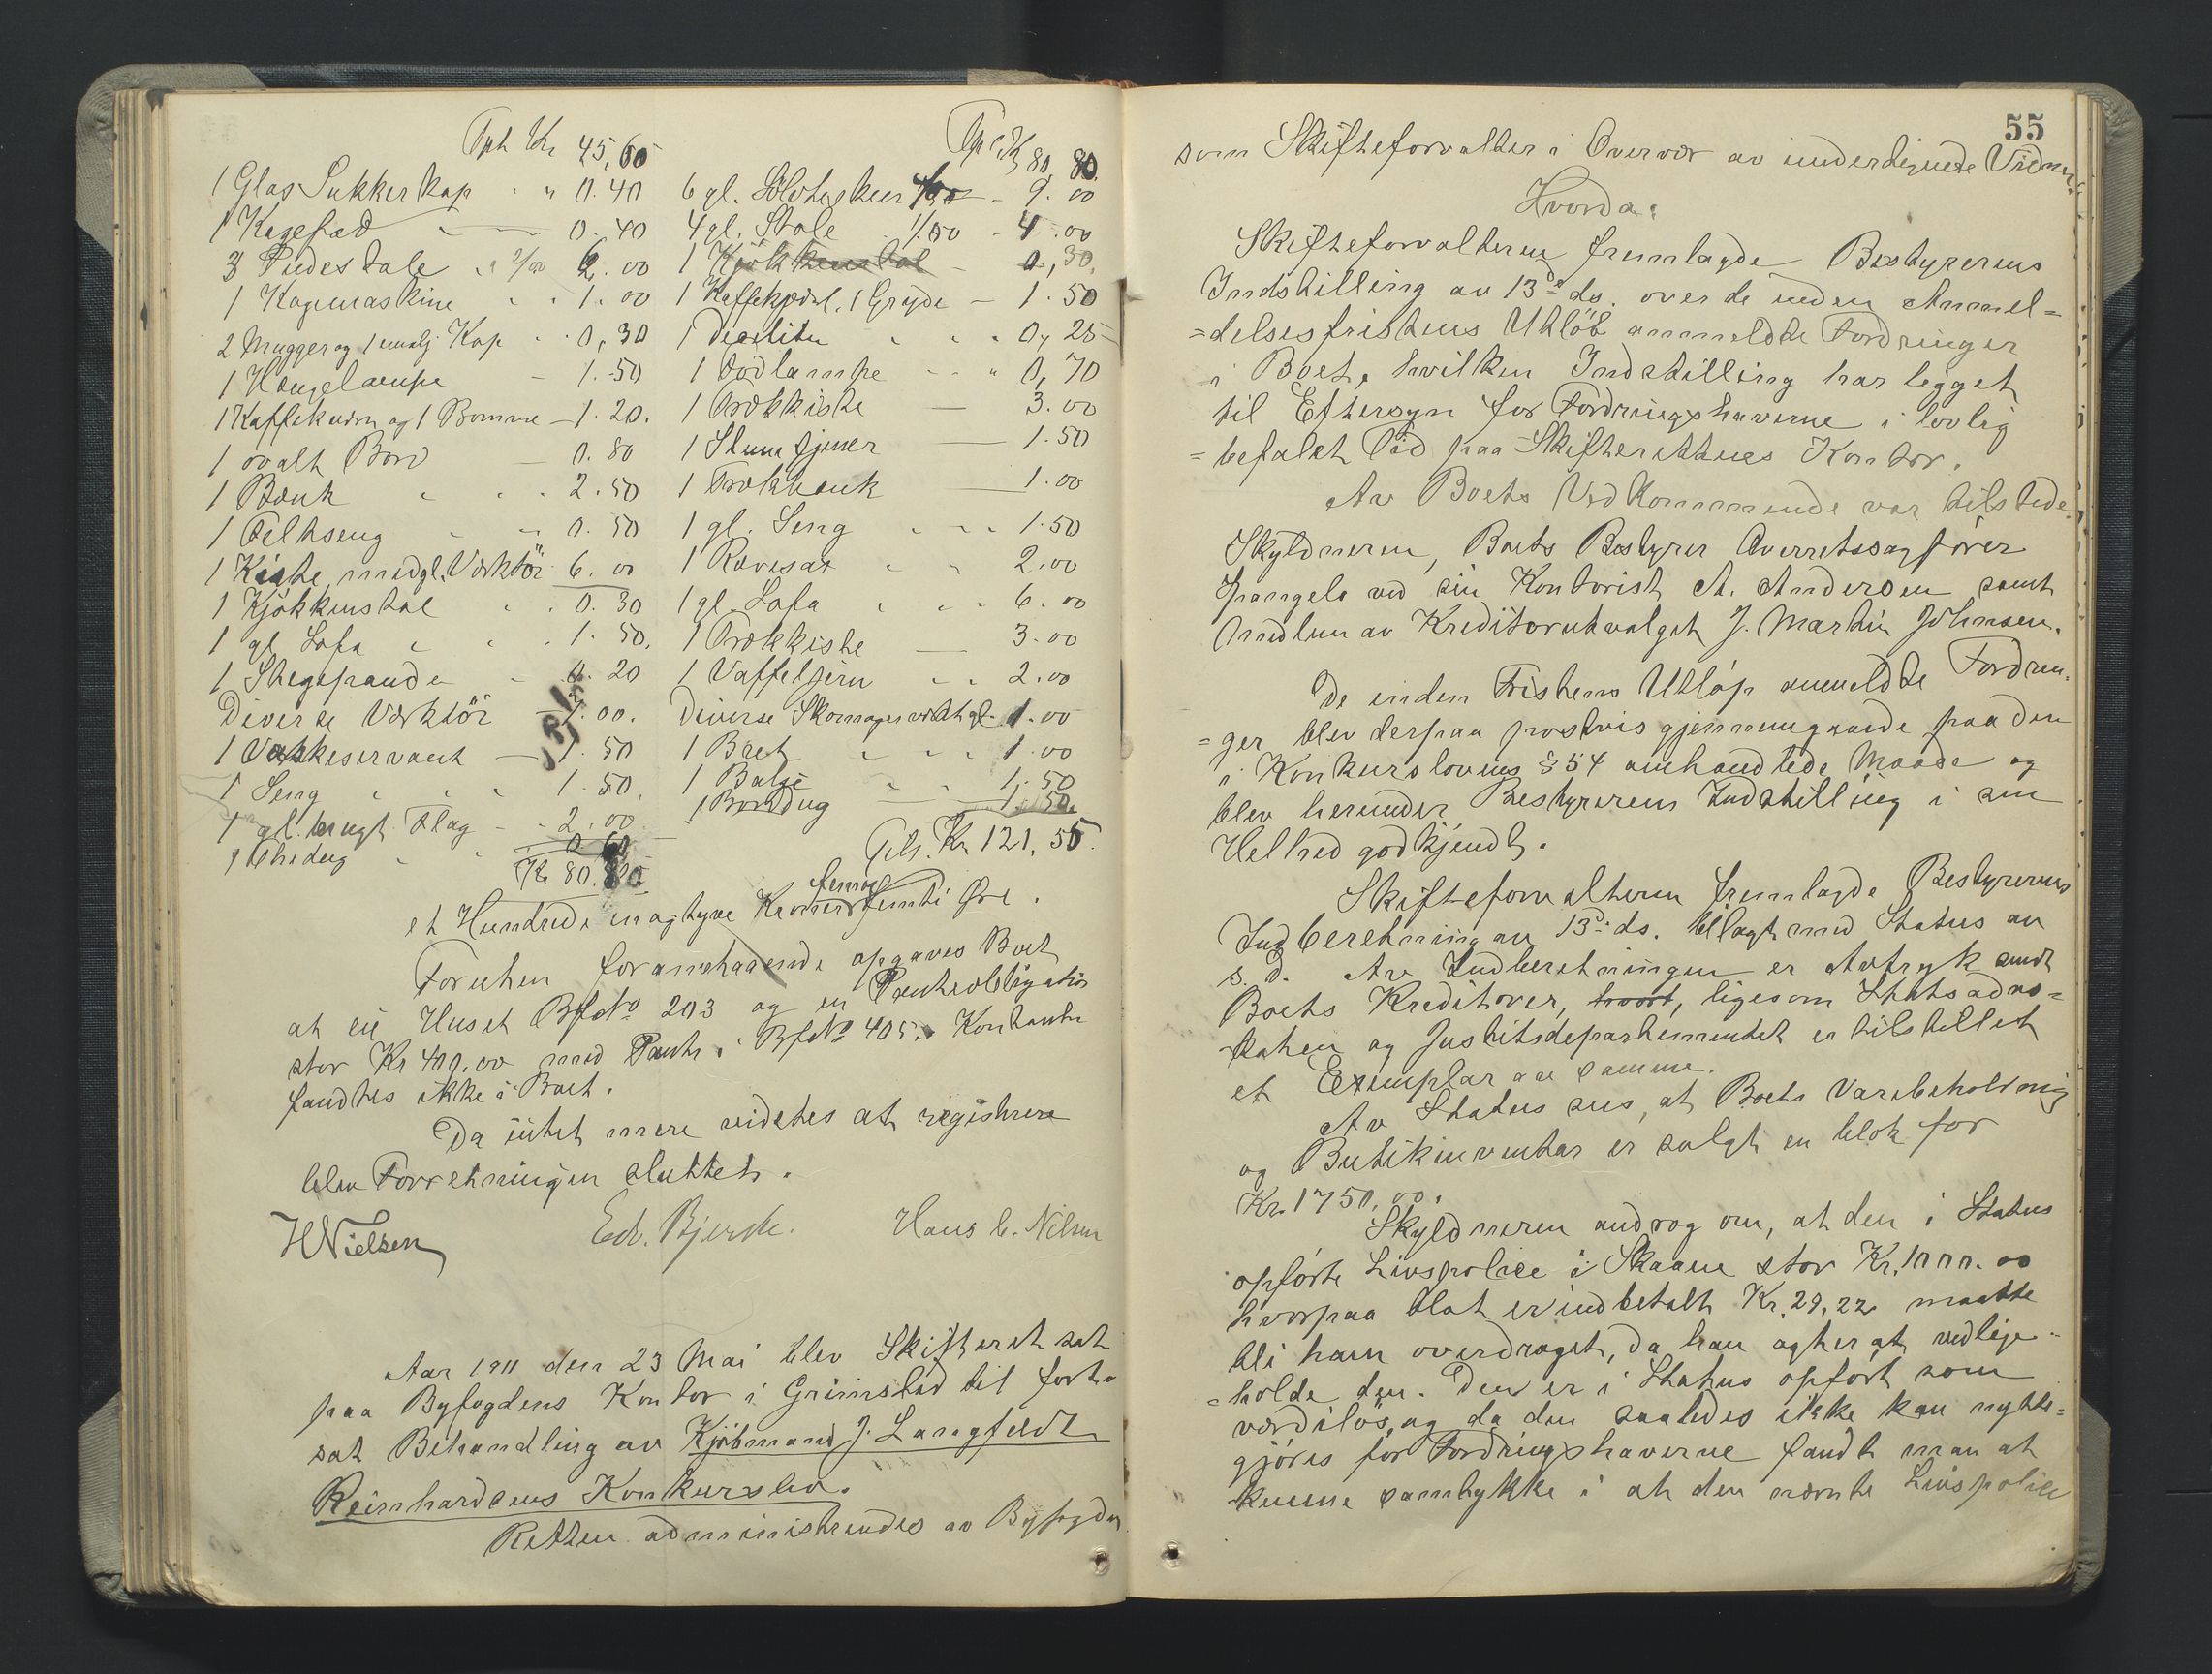 Tpt Kr 45,60
1 Glas Sukkerkop " 0.40
1 Kagefad 0.40
3 Pidestale a 2/00 6.00
1 Kagemaskine 1.00
2 Mugger og 1 emalj. Kop 0,30
1 Hængelampe 1.50
1 Kaffekværn og 1 Bomme 1.20.
1 ovalt Bord 0.80
1 Bænk 2.50
1 Feltseng 0.50
1 Kiste med gl. Værktöi 6.00
1 Kjøkkenstol 0.30
1 gl. Sofa 1.50.
1 Stegepande 0.20
Diverse Værktöi 1.00.
1 Vaskeservant 1.50
1 Seng 1.50
1 gl. brugt Flag 2.00
1 Thedug 0 60
Kr 80.80
Tpt Kr 80,80.
6 gl. Sölvteskeer 9.00
4 gl. Stole 1/00 4.00
1 Kjökkenstol 0,30.
1 Kaffekjedel, 1 Gryde 1.50
1 Decilitu 0,25
1 Lodlampe 0,70
1 Trækkiste 3.00
1 Stumtjener 1.50
1 Trækbænk 1.00
1 gl. Seng 1.50
1 Rævesax 2.00
1 gl. Sofa 6.00
1 Trækkiste 3.00
1 Vaffeljern 2.00
Diverse Skomagerværktøi gl. 1.00
1 Bret 1.00
1 Balje 1.50
1 Borddug 1.50.
Tils. Kr. 121,55.
femog
et Hundrede en og tyve Kroner femti Øre.
Foruten foranstaaende opgaves Boet
at eie Huset Bfd No 203 og en Panteobligation
stor Kr 400.00 med Pant i Bfd No 405. Kontanter
fandtes ikke i Boet.
Da intet mere vidstes at registrere
blev Forretningen sluttet.
HNielsen Edv. Bjerke. Hans C. Nilsen
Aar 1911 den 23 Mai blev Skifteret sat
paa Byfogdens Kontor i Grimstad til fort-
sat Behandling av Kjøbmand J. Langfeldt
Reinhardsens Konkursbo.
Retten administreredes av Byfogden
55
som Skifteforvalter i Overvær av undertegnede Vidner.
Hvorda:
Skifteforvalteren fremlagde Bestyrerens
Indstilling av 13de ds. over de inden Anmel=
=delsesfristens Utlöb anmeldte Fordringer
i Boet, hvilken Indstilling har ligget
til Eftersyn for Fordringshaverne i lovlig
=befalet Tid paa Skifterettens Kontor.
Av Boets Vedkommende var tilstede
Skyldneren, Boets Bestyrer Overretssagfører
Spangelo ved sin Kontorist A. Andersen samt
Medlem av Kreditorutvalget J. Martin Johnsen.
De inden Fristens Utløp anmeldte Fordrin-
=ger blev derpaa postvis gjennemgaaede paa den
i Konkurslovens § 54 omhandlede Maade og
blev herunder Bestyrerens Indstilling i sin
Helhed godkjendt.
Skifteforvalteren fremlagde Bestyrerens
Indberetning av 13de ds. bilagt med Status av
s.d. Av Indberetningen er Avtryk sendt
Boets Kreditorer, hvort, ligesom Statsadvo=
katen og Justitsdepartementet er tilstillet
et Exemplar av samme.
Av Status sees, at Boets Varebeholdning
og Butikinventar er solgt en blok for
Kr. 1750,00.
Skyldneren androg om, at den i Status
opførte Livspolice i Skaane stor Kr. 1000.00
hvorpaa blot er indbetalt Kr. 29,22 maatte
bli ham overdraget, da han agter at vedlige-
=holde den. Den er i Status opført som
værdiløs, og da den saaledes ikke kan nytte=
gjøres for Fordringshaverne fandt man at
kunne samtykke i at den nævnte Livspolice